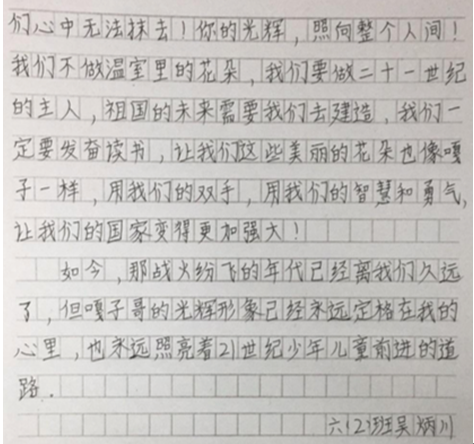 们心中无法抹去！你的光辉，照向整个人间！
我们不做温室里的花朵，我们要做二十一世纪
的主人，祖国的未来需要我们去建造，我们一
定要发奋读书，让我们这些美丽的花朵也像嘎
子一样，用我们的双手，用我们的智慧和勇气，
让我们的国家变得更加强大！
如今，那战火纷飞的年代已经离我们久远
了，但嘎子哥的光辉形象已经永远定格在我的
心里，也永远照亮着21世纪少年儿童前进的道
路.
六(2)班吴炳川